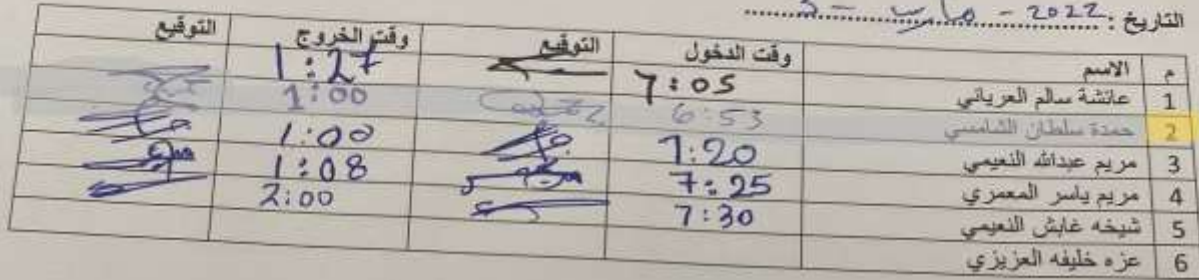 التاريخ : 2022 - مارس - 3
م الاسم وقت الدخول التوقيع وقت الخروج التوقيع
1 عائشة سالم العرياني 7:05 1:27
2 حمدة سلطان الشامسي 6:53 1:00
3 مريم عبدالله النعيمي 7:20 1:00
4 مريم ياسر المعمري 7:25 1:08
5 شيخه غابش النعيمي 7:30 2:00
6 عزه خليفه العزيزي